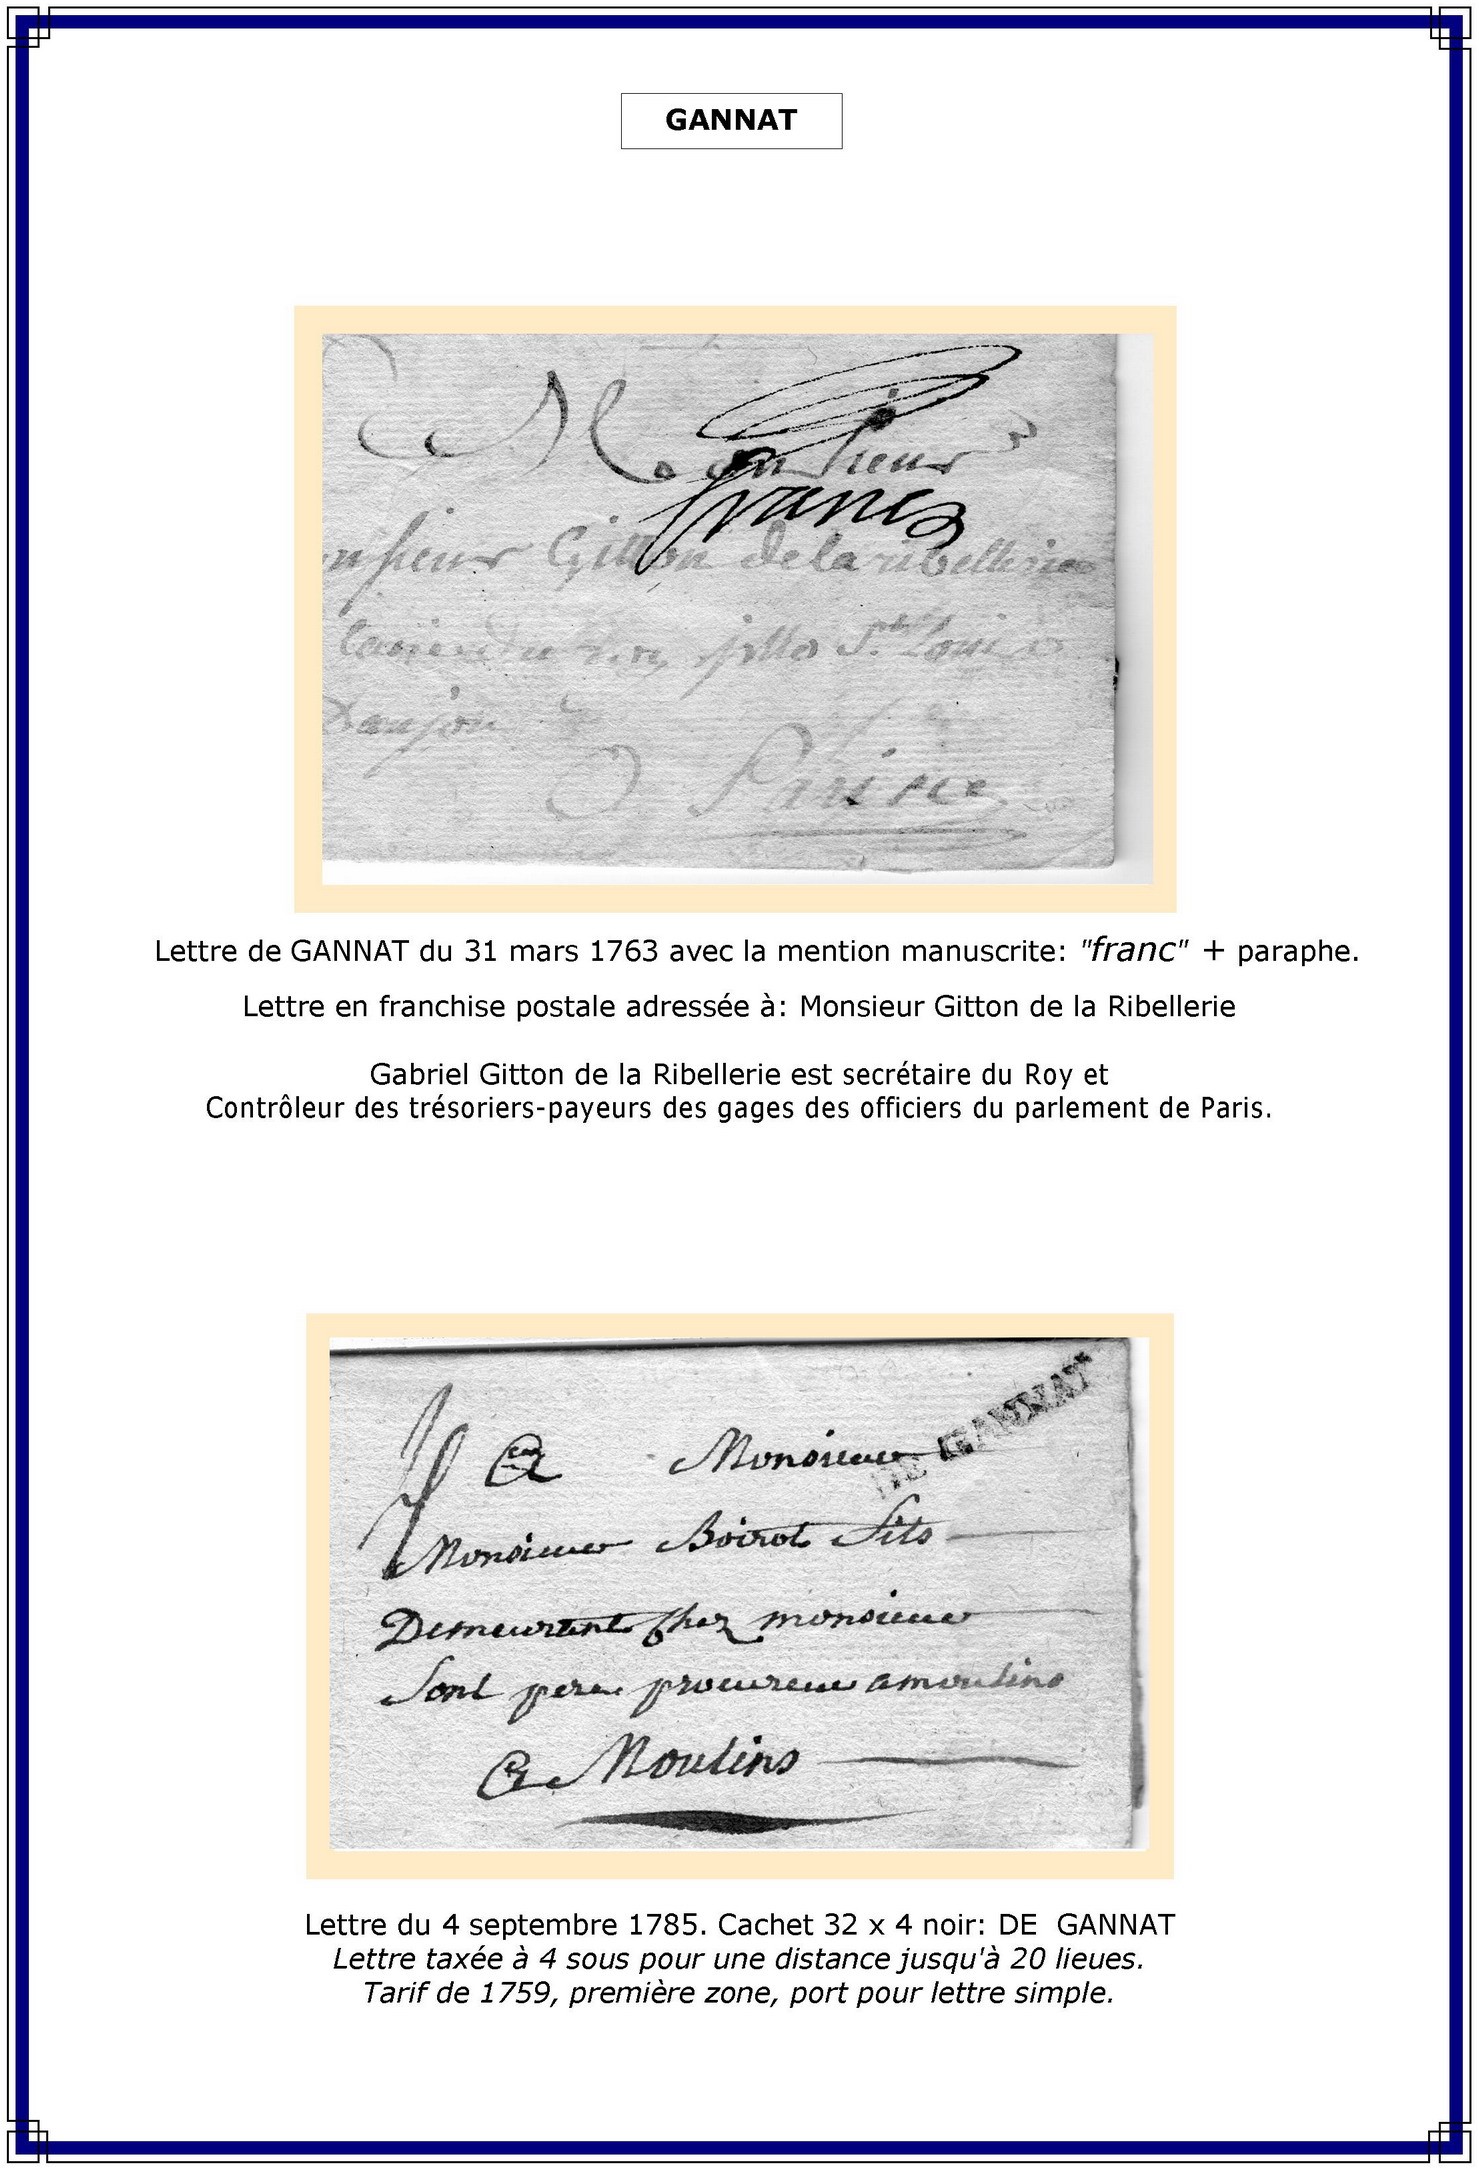 GANNAT
Monsieur
franc
nsieur Gitton de la ribellerie
St Louis
Danjou
A Paris
Lettre de GANNAT du 31 mars 1763 avec la mention manuscrite: "franc" + paraphe.
Lettre en franchise postale adressée à: Monsieur Gitton de la Ribellerie
Gabriel Gitton de la Ribellerie est secrétaire du Roy et
Contrôleur des trésoriers-payeurs des gages des officiers du parlement de Paris.
DE GANNAT
4
A Monsieur
Monsieur Boirot fils
Demeurant Chez monsieur
Sont pere procureur a moulins
A Moulins
Lettre du 4 septembre 1785. Cachet 32 x 4 noir: DE GANNAT
Lettre taxée à 4 sous pour une distance jusqu'à 20 lieues.
Tarif de 1759, première zone, port pour lettre simple.